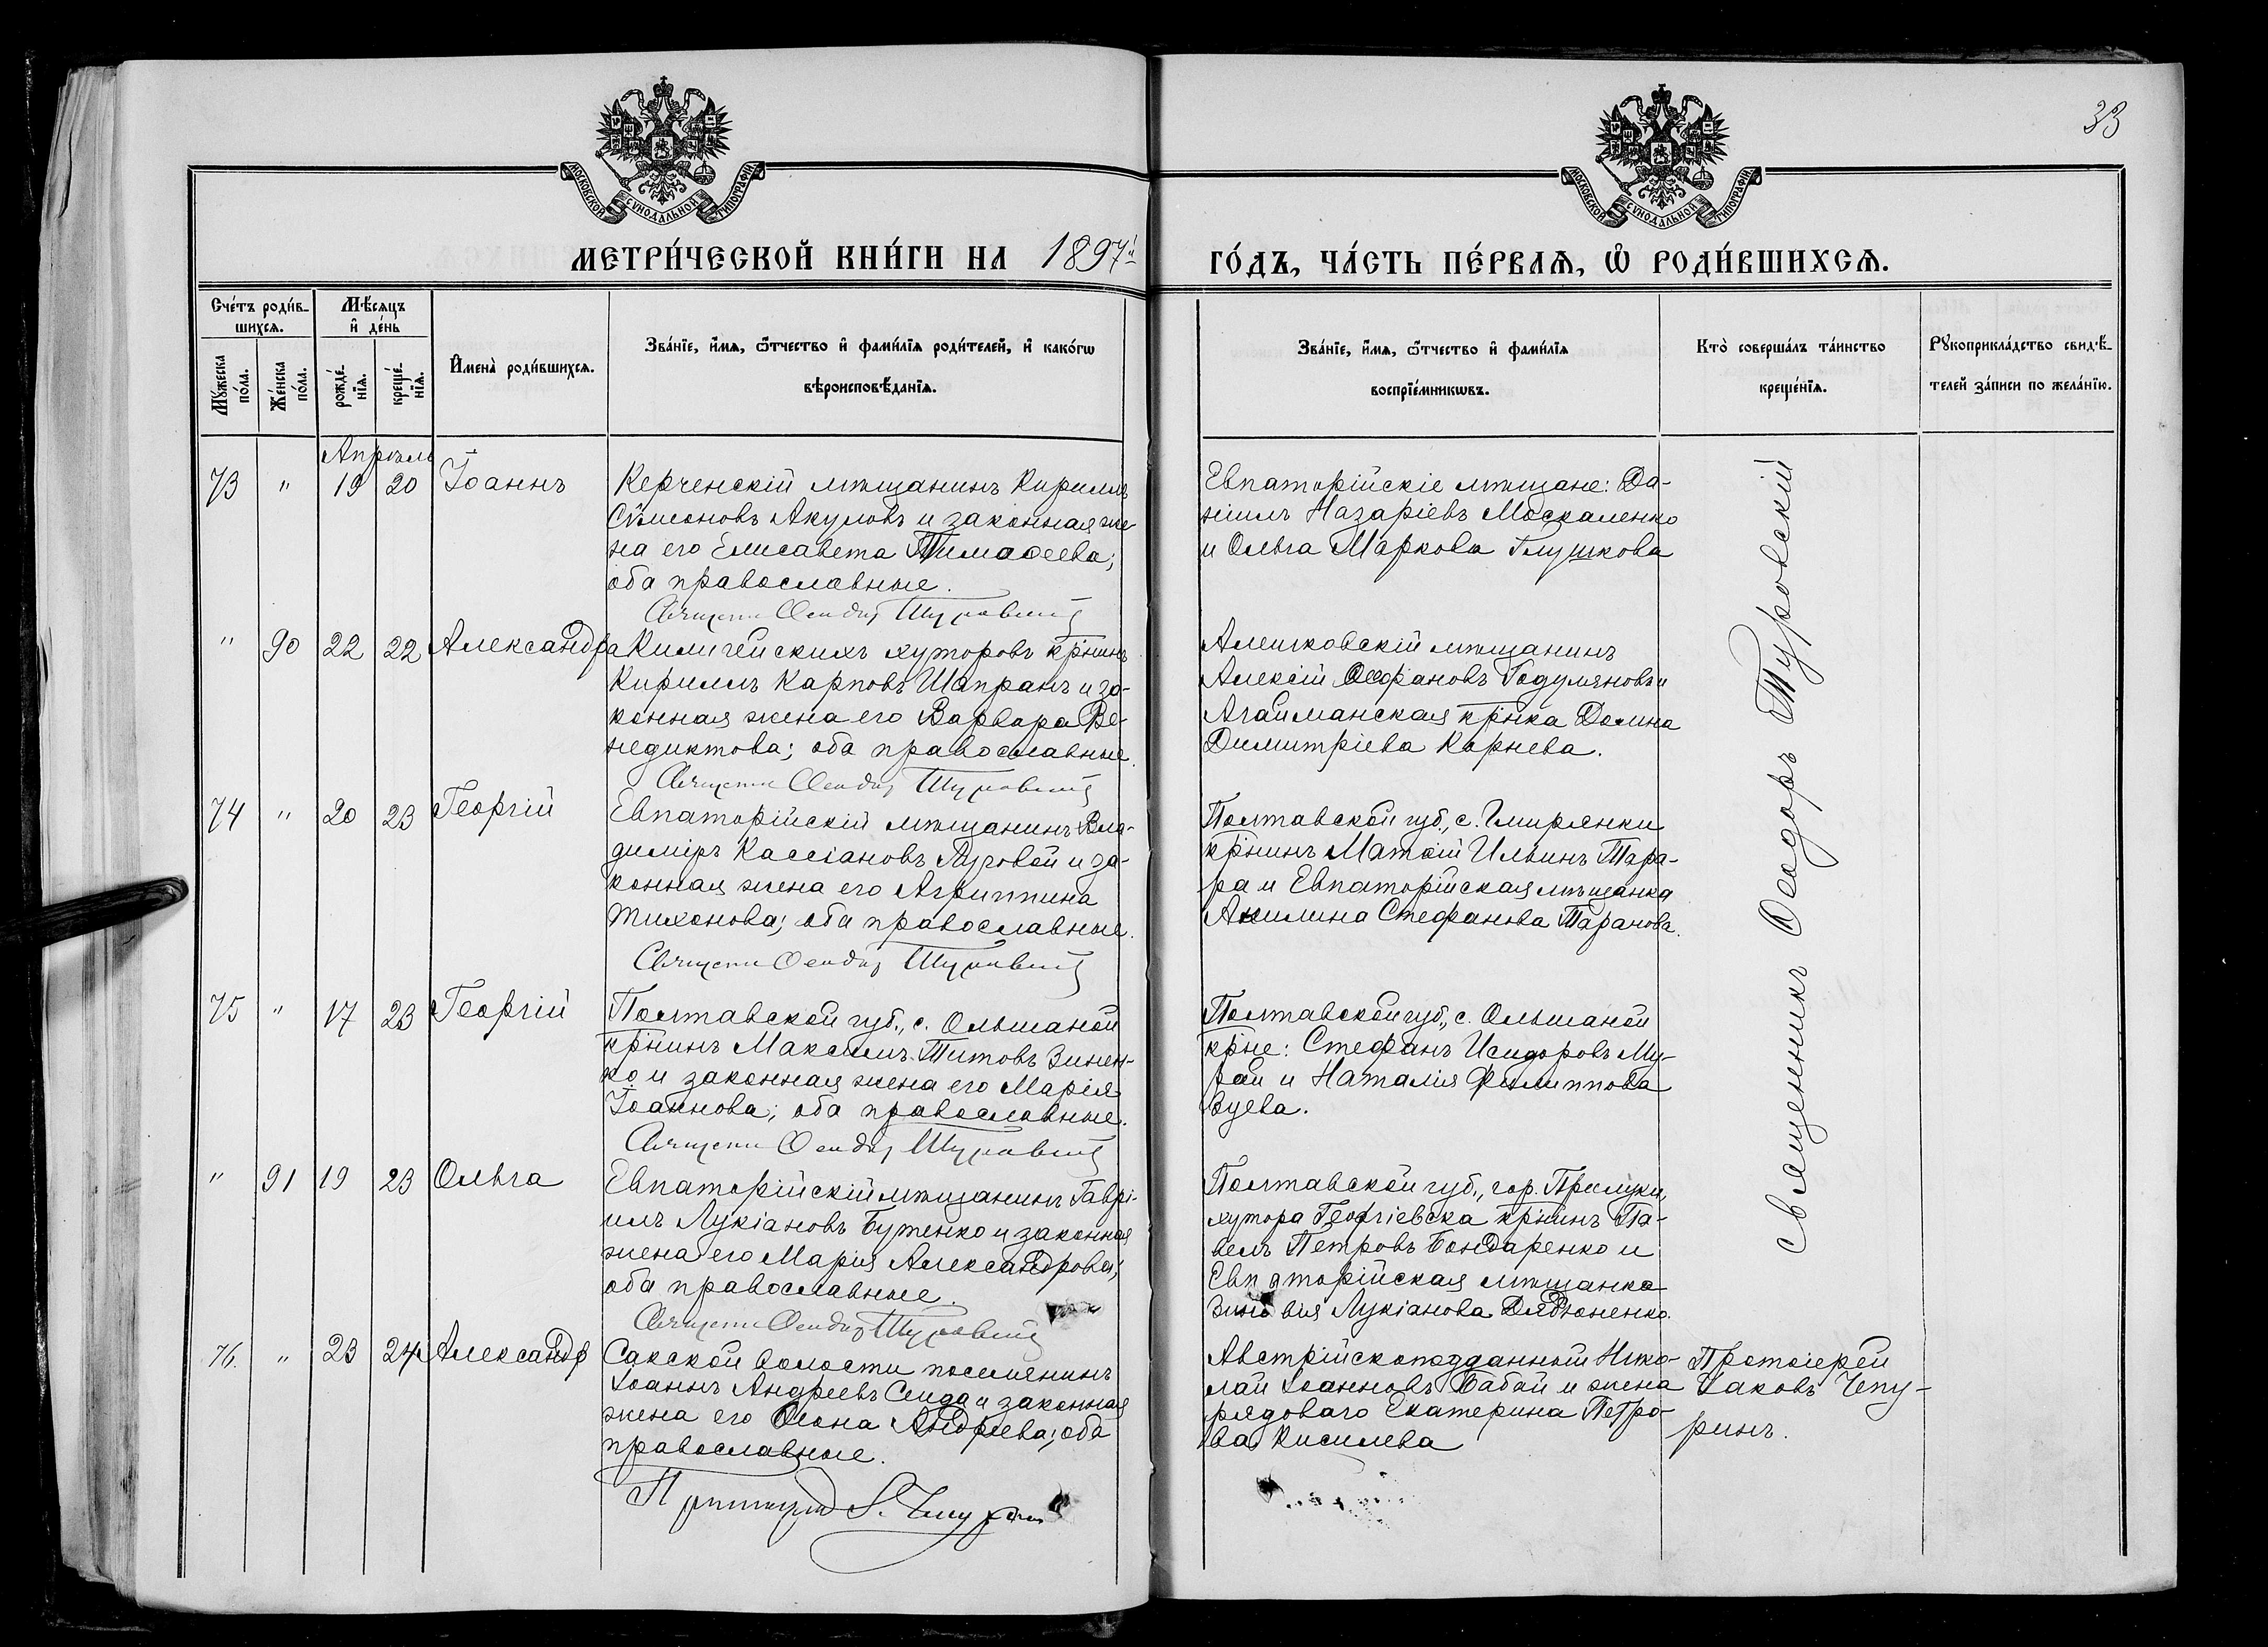 33
МОСКОВСКОЙ СѴНОДАЛЬНОЙ ТИПОГРАФІИ
МОСКОВСКОЙ СѴНОДАЛЬНОЙ ТИПОГРАФІИ
МЕТРИ́ЧЕСКОЙ КНИ́ГИ НА 1897й ГО́ДЪ, ЧА́СТЬ ПЕ́РВАѦ, Ѡ҆ РОДИ́ВШИХСѦ.
Сче́тъ роди́в-
шихсѧ.
Мꙋ́жеска
по́ла.
Же́нска
по́ла.
Мѣ́сѧцъ
и҆ де́нь
рожде́-
нїѧ.
креще́-
нїѧ.
И҆мена̀ роди́вшихсѧ.
Зва́нїе, и҆́мѧ, ѻ҆́тчество и҆ фами́лїѧ роди́телей, и҆ како́гѡ
вѣроисповѣ́данїѧ.
Зва́нїе, и҆́мѧ, ѻ҆́тчество и҆ фами́лїѧ
воспрїе́мникѡвъ.
Кто̀ соверша́лъ та́инство
креще́нїѧ.
Рꙋкоприкла́дство свидѣ́-
телей за́писи по жела́нїю.
Апрѣль
73 " 19 20 Іоаннъ
Керченскій мѣщанинъ Кириллъ
Сѵмеоновъ Акуловъ и законная же
на его Елисавета Тимоѳеева;
оба православные.
Священн Ѳеодоръ Туровскій
Евпаторійскіе мѣщане: Да-
ніилъ Назаріевъ Москаленко
и Ольга Маркова Глушкова
Священникъ Ѳеодоръ Туровскій
" 90 22 22 Александра
Килигейскихъ хуторовъ кр̄нинъ
Кириллъ Карповъ Шапранъ и за-
конная жена его Варвара Ве-
недиктова; оба православные.
Священн Ѳеодоръ Туровскій
Алешковскій мѣщанинъ
Алексій Стефановъ Годуляновъ и
Агайманская кр̄нка Домна
Димитріева Корнева.
74 " 20 23 Георгій
Евпаторійскій мѣщанинъ Вла-
диміръ Кассіановъ Луговой и за-
конная жена его Агриппина
Тихонова; оба православные.
Священн Ѳеодоръ Туровскій
Полтавской губ., с. Гмирянки
кр̄нинъ Матѳій Ильинъ Тара-
ра и Евпаторійская мѣщанка
Акилина Стефанова Таранова.
75 " 17 23 Георгій
Полтавской губ., с. Ольшаной
кр̄нинъ Максимъ Титовъ Зинен-
ко и законная жена его Марія
Іоаннова; оба православные.
Священн Ѳеодоръ Туровскій
Полтавской губ., с. Ольшаной
кр̄не: Стефанъ Исидоровъ Му-
рай и Наталія Филиппова
Зуева.
" 91 19 23 Ольга
Евпаторійскій мѣщанинъ Гаврі-
илъ Лукіановъ Бутенко и законная
жена его Марія Александрова;
оба православные.
Священн Ѳеодоръ Туровскій
Полтавской губ., гор. Прилуки,
хутора Георгіевска кр̄нинъ Па-
велъ Петровъ Бондаренко и
Евпаторійская мѣщанка
Зиновія Лукіанова Дядюненко.
76. " 23 24 Александръ
Сакской волости поселянинъ
Іоаннъ Андреевъ Сеида и законная
жена его Андреева; оба
православные.
Протоіерей Чепуринъ
Австрійскоподданный Нико-
лай Іоанновъ Бабай и жена
рядоваго Екатерина Петро-
ва Киселева
Протоіерей
Іаковъ Чепу-
ринъ.